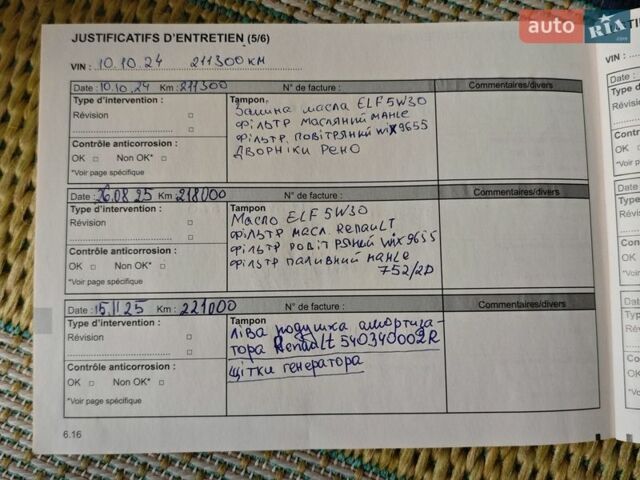 auto RIA.com
JUSTIFICATIFS D'ENTRETIEN (5/6)
VIN : 10.10.24 211300 KM
VIN :
Date : 10.10.24 Km : 211300 N° de facture : Commentaires/divers
Type d'intervention : Tampon
Révision
Заміна масла ELF 5W30
Фільтр масляний Mahle
Фільтр повітряний Wix 9655
Дворніки Рено
Contrôle anticorrosion :
OK Non OK*
*Voir page spécifique
Date : 26.08.25 Km : 218000 N° de facture : Commentaires/divers
Type d'intervention : Tampon
Révision
Масло ELF 5W30
Фільтр масл. Renault
Фільтр повітряний Wix 9655
Фільтр паливний Mahle
752/2D
Contrôle anticorrosion :
OK Non OK*
*Voir page spécifique
Date : 15.11.25 Km : 221000 N° de facture : Commentaires/divers
Type d'intervention : Tampon
Révision
Ліва подушка амортиза-
тора Renault 540340002R
щітки генератора
Contrôle anticorrosion :
OK Non OK*
*Voir page spécifique
6.16